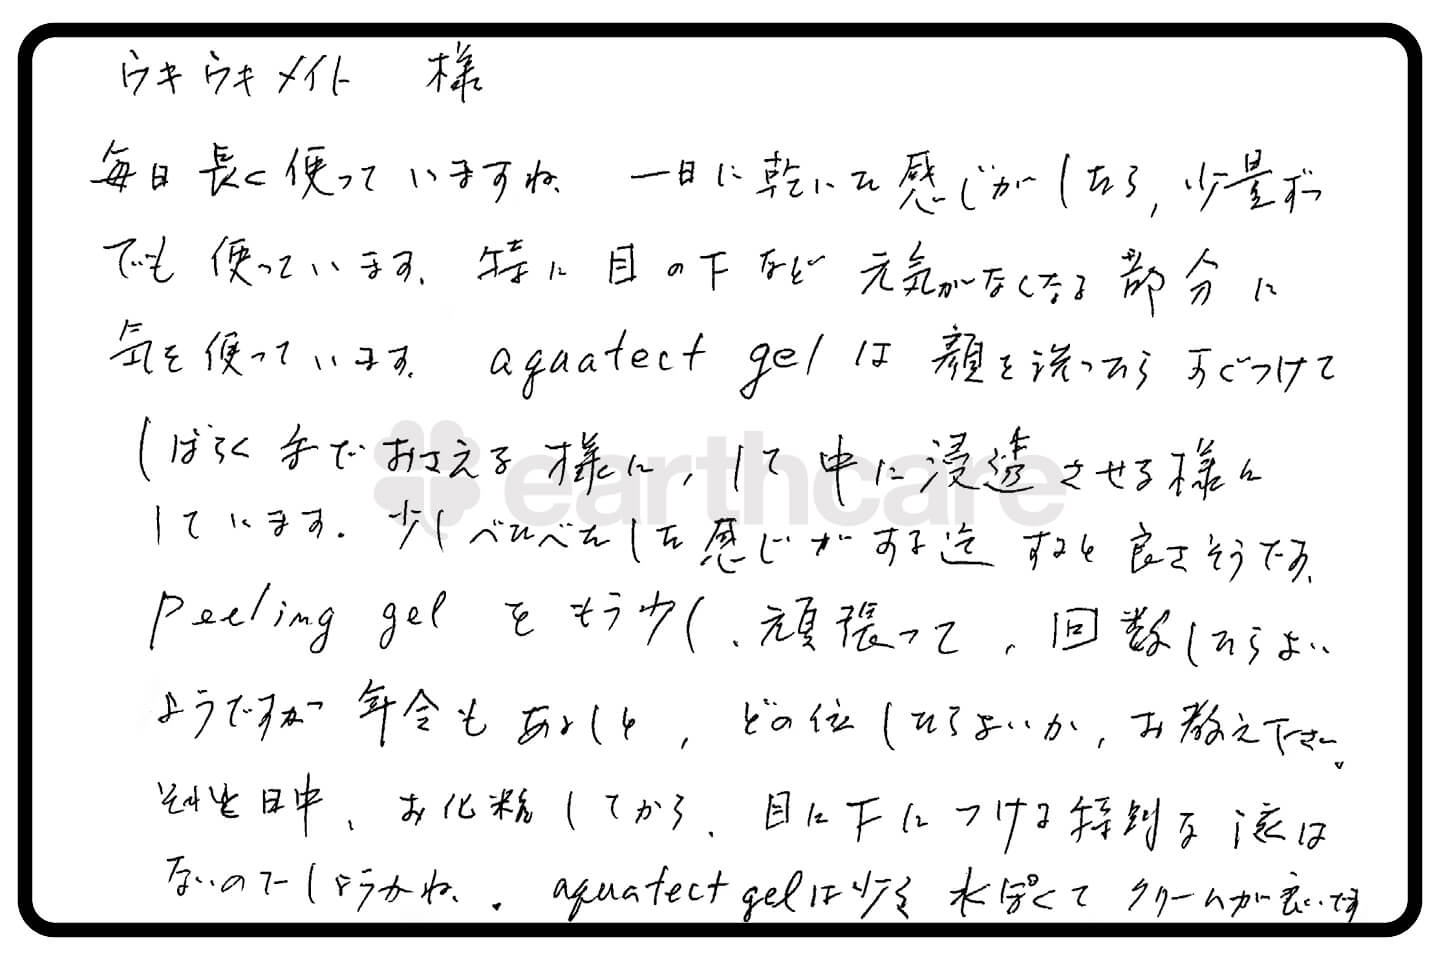 ウキウキメイト 様
毎日長く使っていますね 一日に乾いた感じがしたら, 少量ずつ
でも 使っています. 特に 目の下など 元気がなくなる部分に
気を使っています. aquatect gel は 顔を洗ったら すぐつけて
しばらく手でおさえる様に, して 中に浸透させる様に
しています. 少しべたべたした感じがする迄 すると良さそうです.
peeling gel をもう少し、頑張って, 回数したらよい
ようですが 年令もあるしと, どの位したらよいか, お教え下さい。
それと日中、お化粧してから、目に下につける特別な液は
ないのでしょうかね、. aquatect gelは少々 水ぽくて クリームが良いです
earthcare